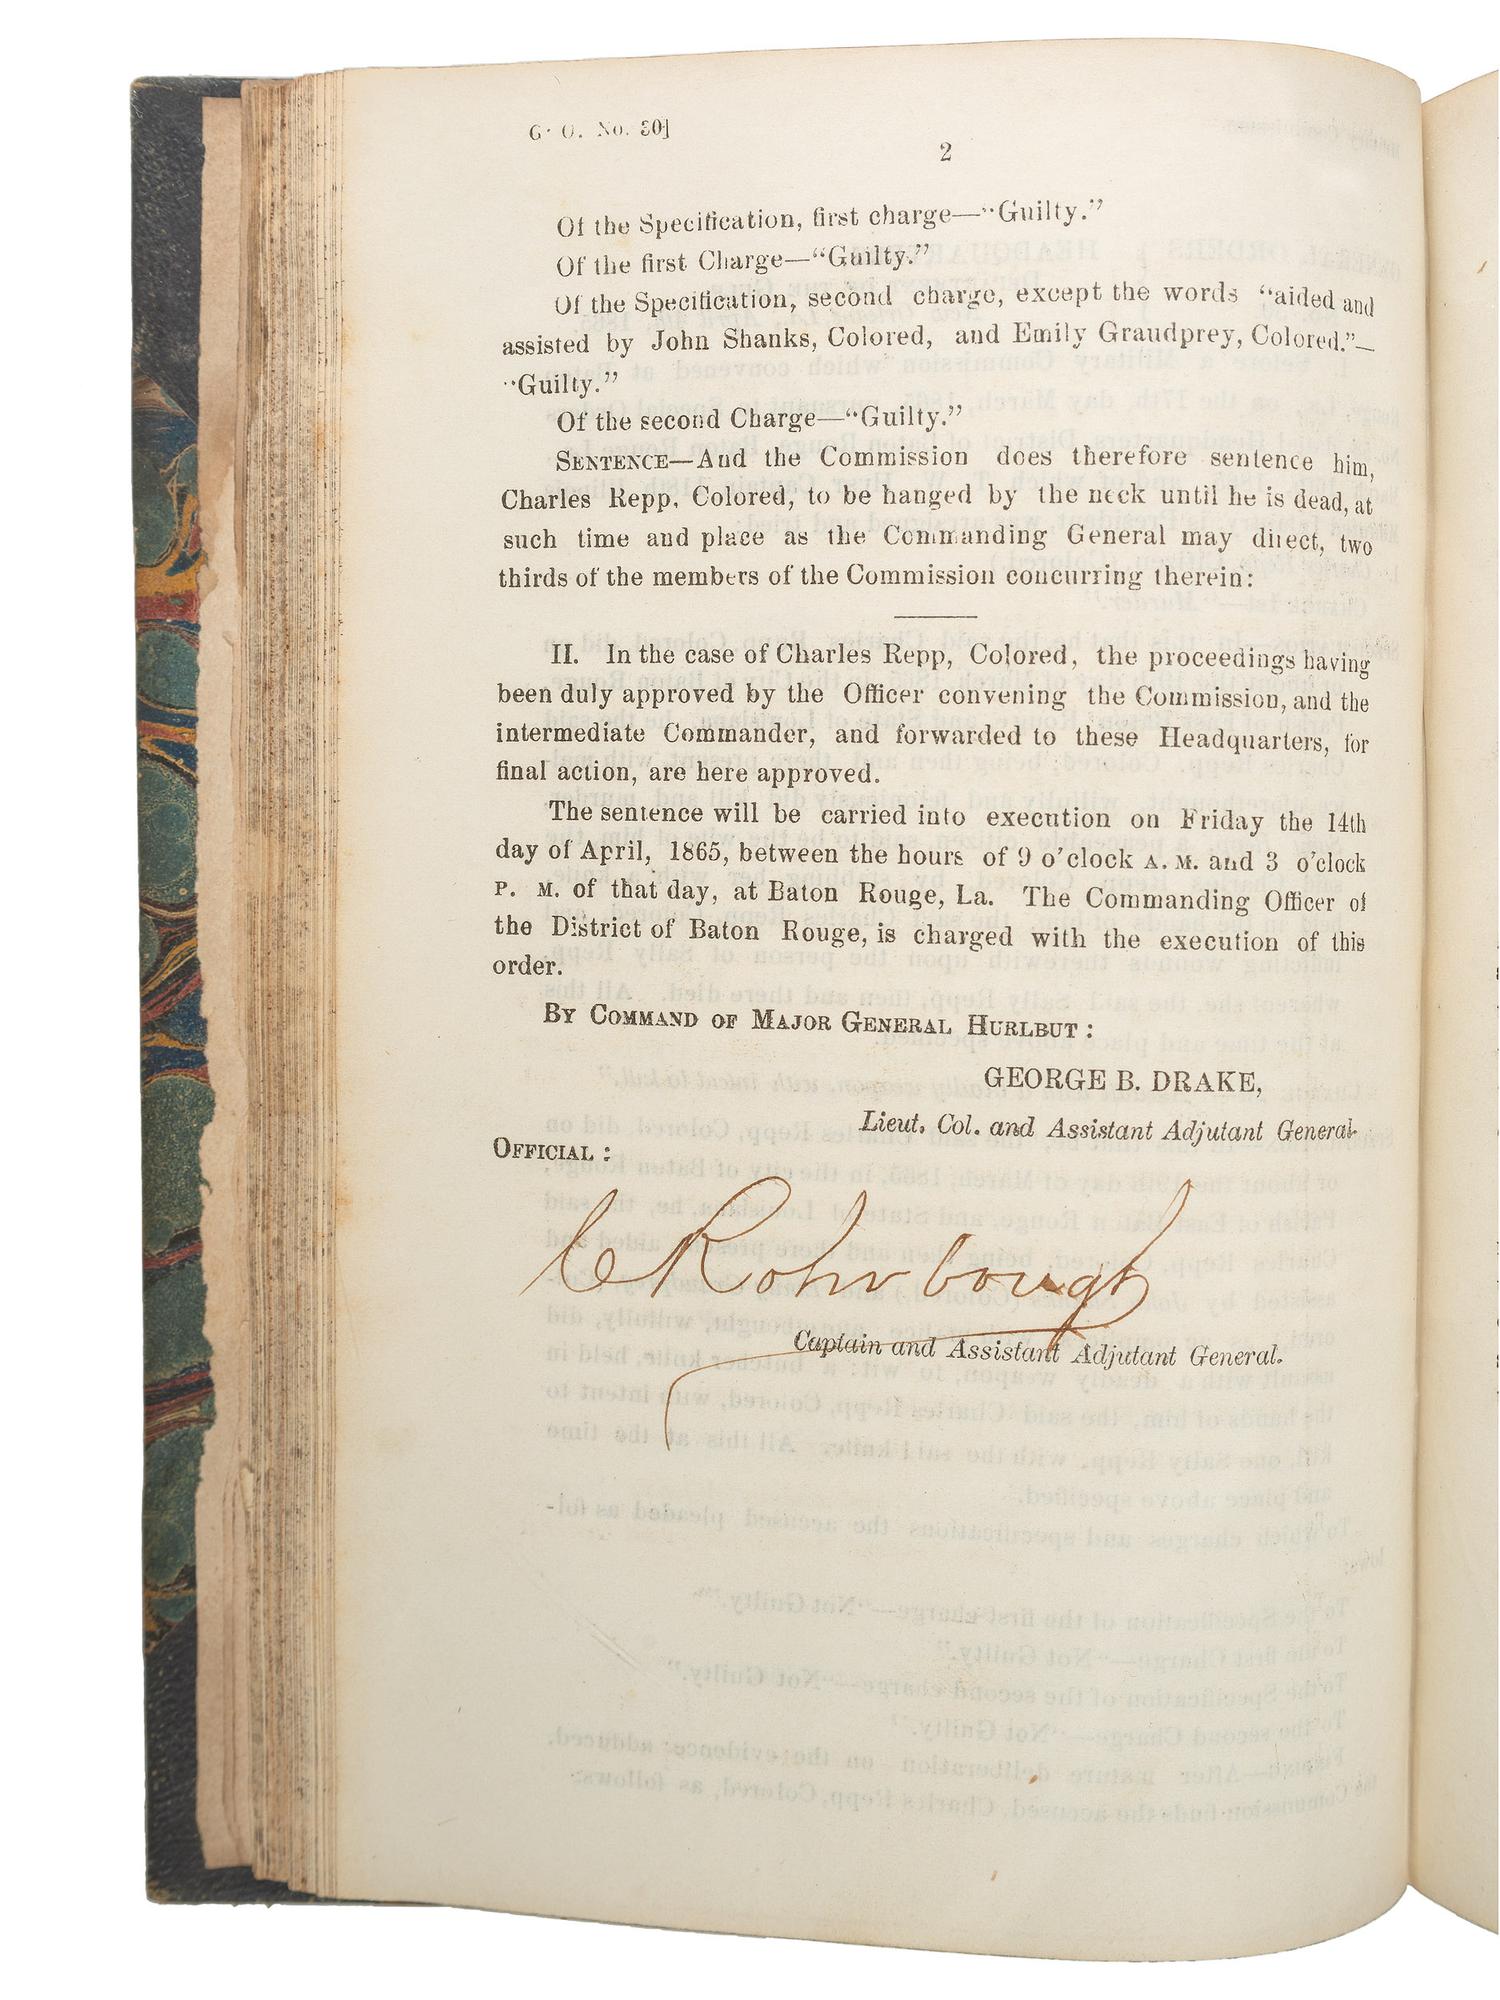 G. O. No. 30]
2
Of the Specification, first charge—"Guilty."
Of the first Charge—"Guilty."
Of the Specification, second charge, except the words "aided and
assisted by John Shanks, Colored, and Emily Graudprey, Colored."—
"Guilty."
Of the second Charge—"Guilty."
SENTENCE—And the Commission does therefore sentence him,
Charles Repp, Colored, to be hanged by the neck until he is dead, at
such time and place as the Commanding General may direct, two
thirds of the members of the Commission concurring therein:
II. In the case of Charles Repp, Colored, the proceedings having
been duly approved by the Officer convening the Commission, and the
intermediate Commander, and forwarded to these Headquarters, for
final action, are here approved.
The sentence will be carried into execution on Friday the 14th
day of April, 1865, between the hours of 9 o'clock A. M. and 3 o'clock
P. M. of that day, at Baton Rouge, La. The Commanding Officer of
the District of Baton Rouge, is charged with the execution of this
order.
BY COMMAND OF MAJOR GENERAL HURLBUT:
GEORGE B. DRAKE,
Lieut. Col. and Assistant Adjutant General.
OFFICIAL:
C Rohrbough
Captain and Assistant Adjutant General.